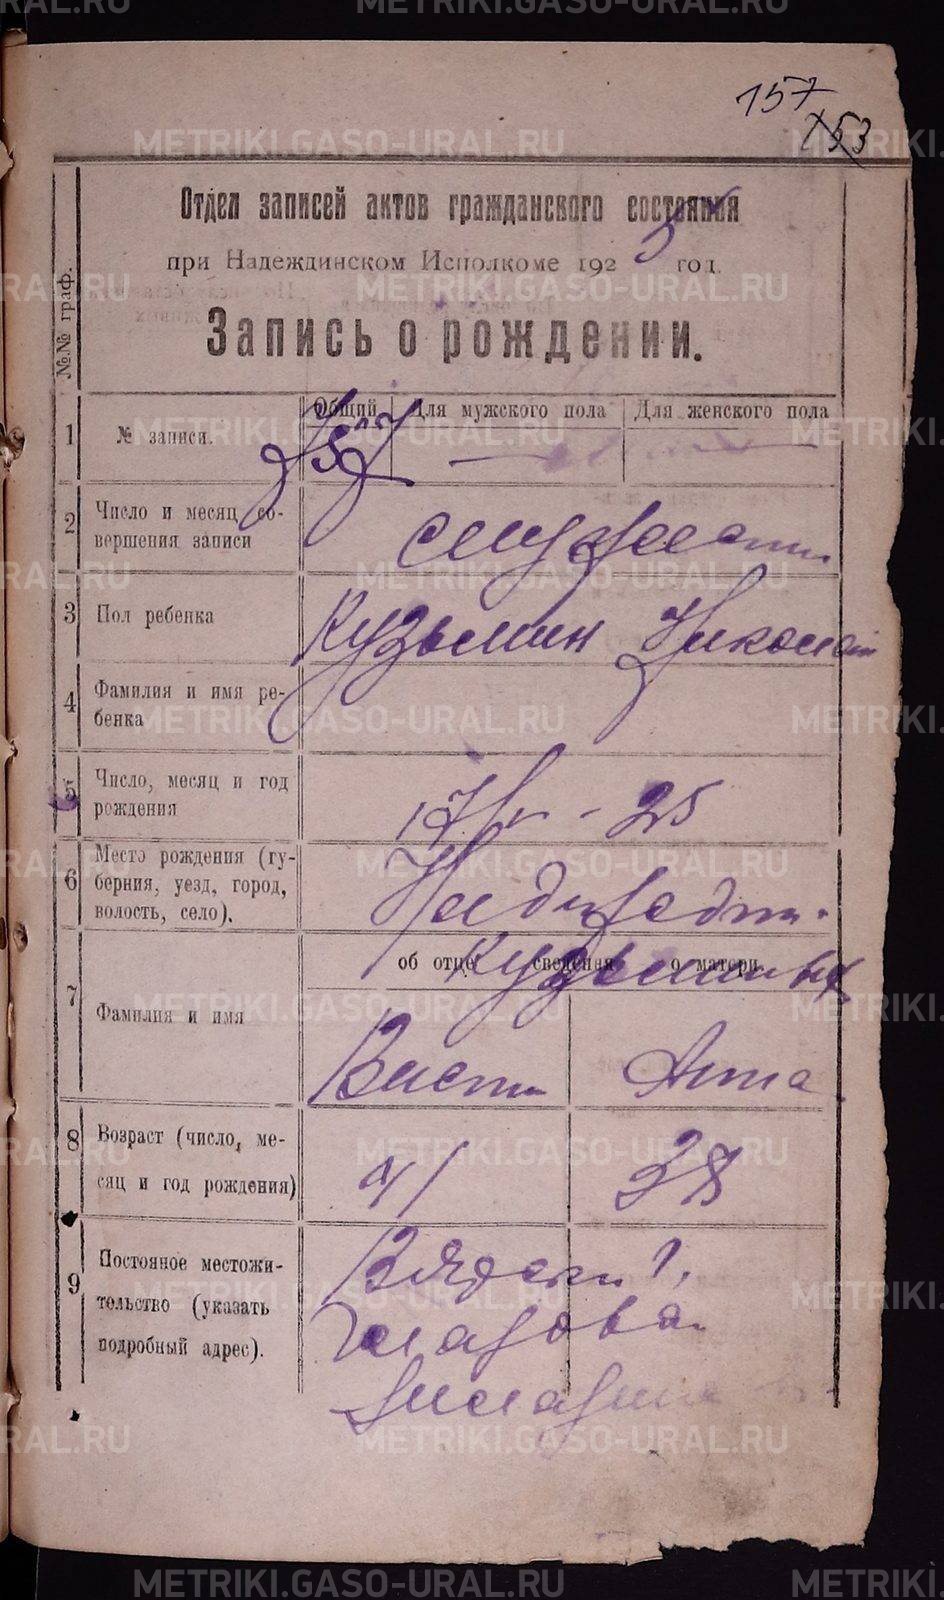 157
153
Отдел записей актов гражданского состояния
при Надеждинском Исполкоме 1925 год.
Запись о рождении.
№№ граф.
Общий Для мужского пола Для женского пола
1 № записи. 157 —
2 Число и месяц совершения записи
3 Пол ребенка
Кузьмин Николай
4 Фамилия и имя ребенка
5 Число, месяц и год рождения
17/IV - 25
6 Место рождения (губерния, уезд, город, волость, село).
об отце сведения о матери
Кузьмины
7 Фамилия и имя
Анна
8 Возраст (число, месяц и год рождения)
41 38
9 Постояное местожительство (указать подробный адрес).
METRIKI.GASO-URAL.RU